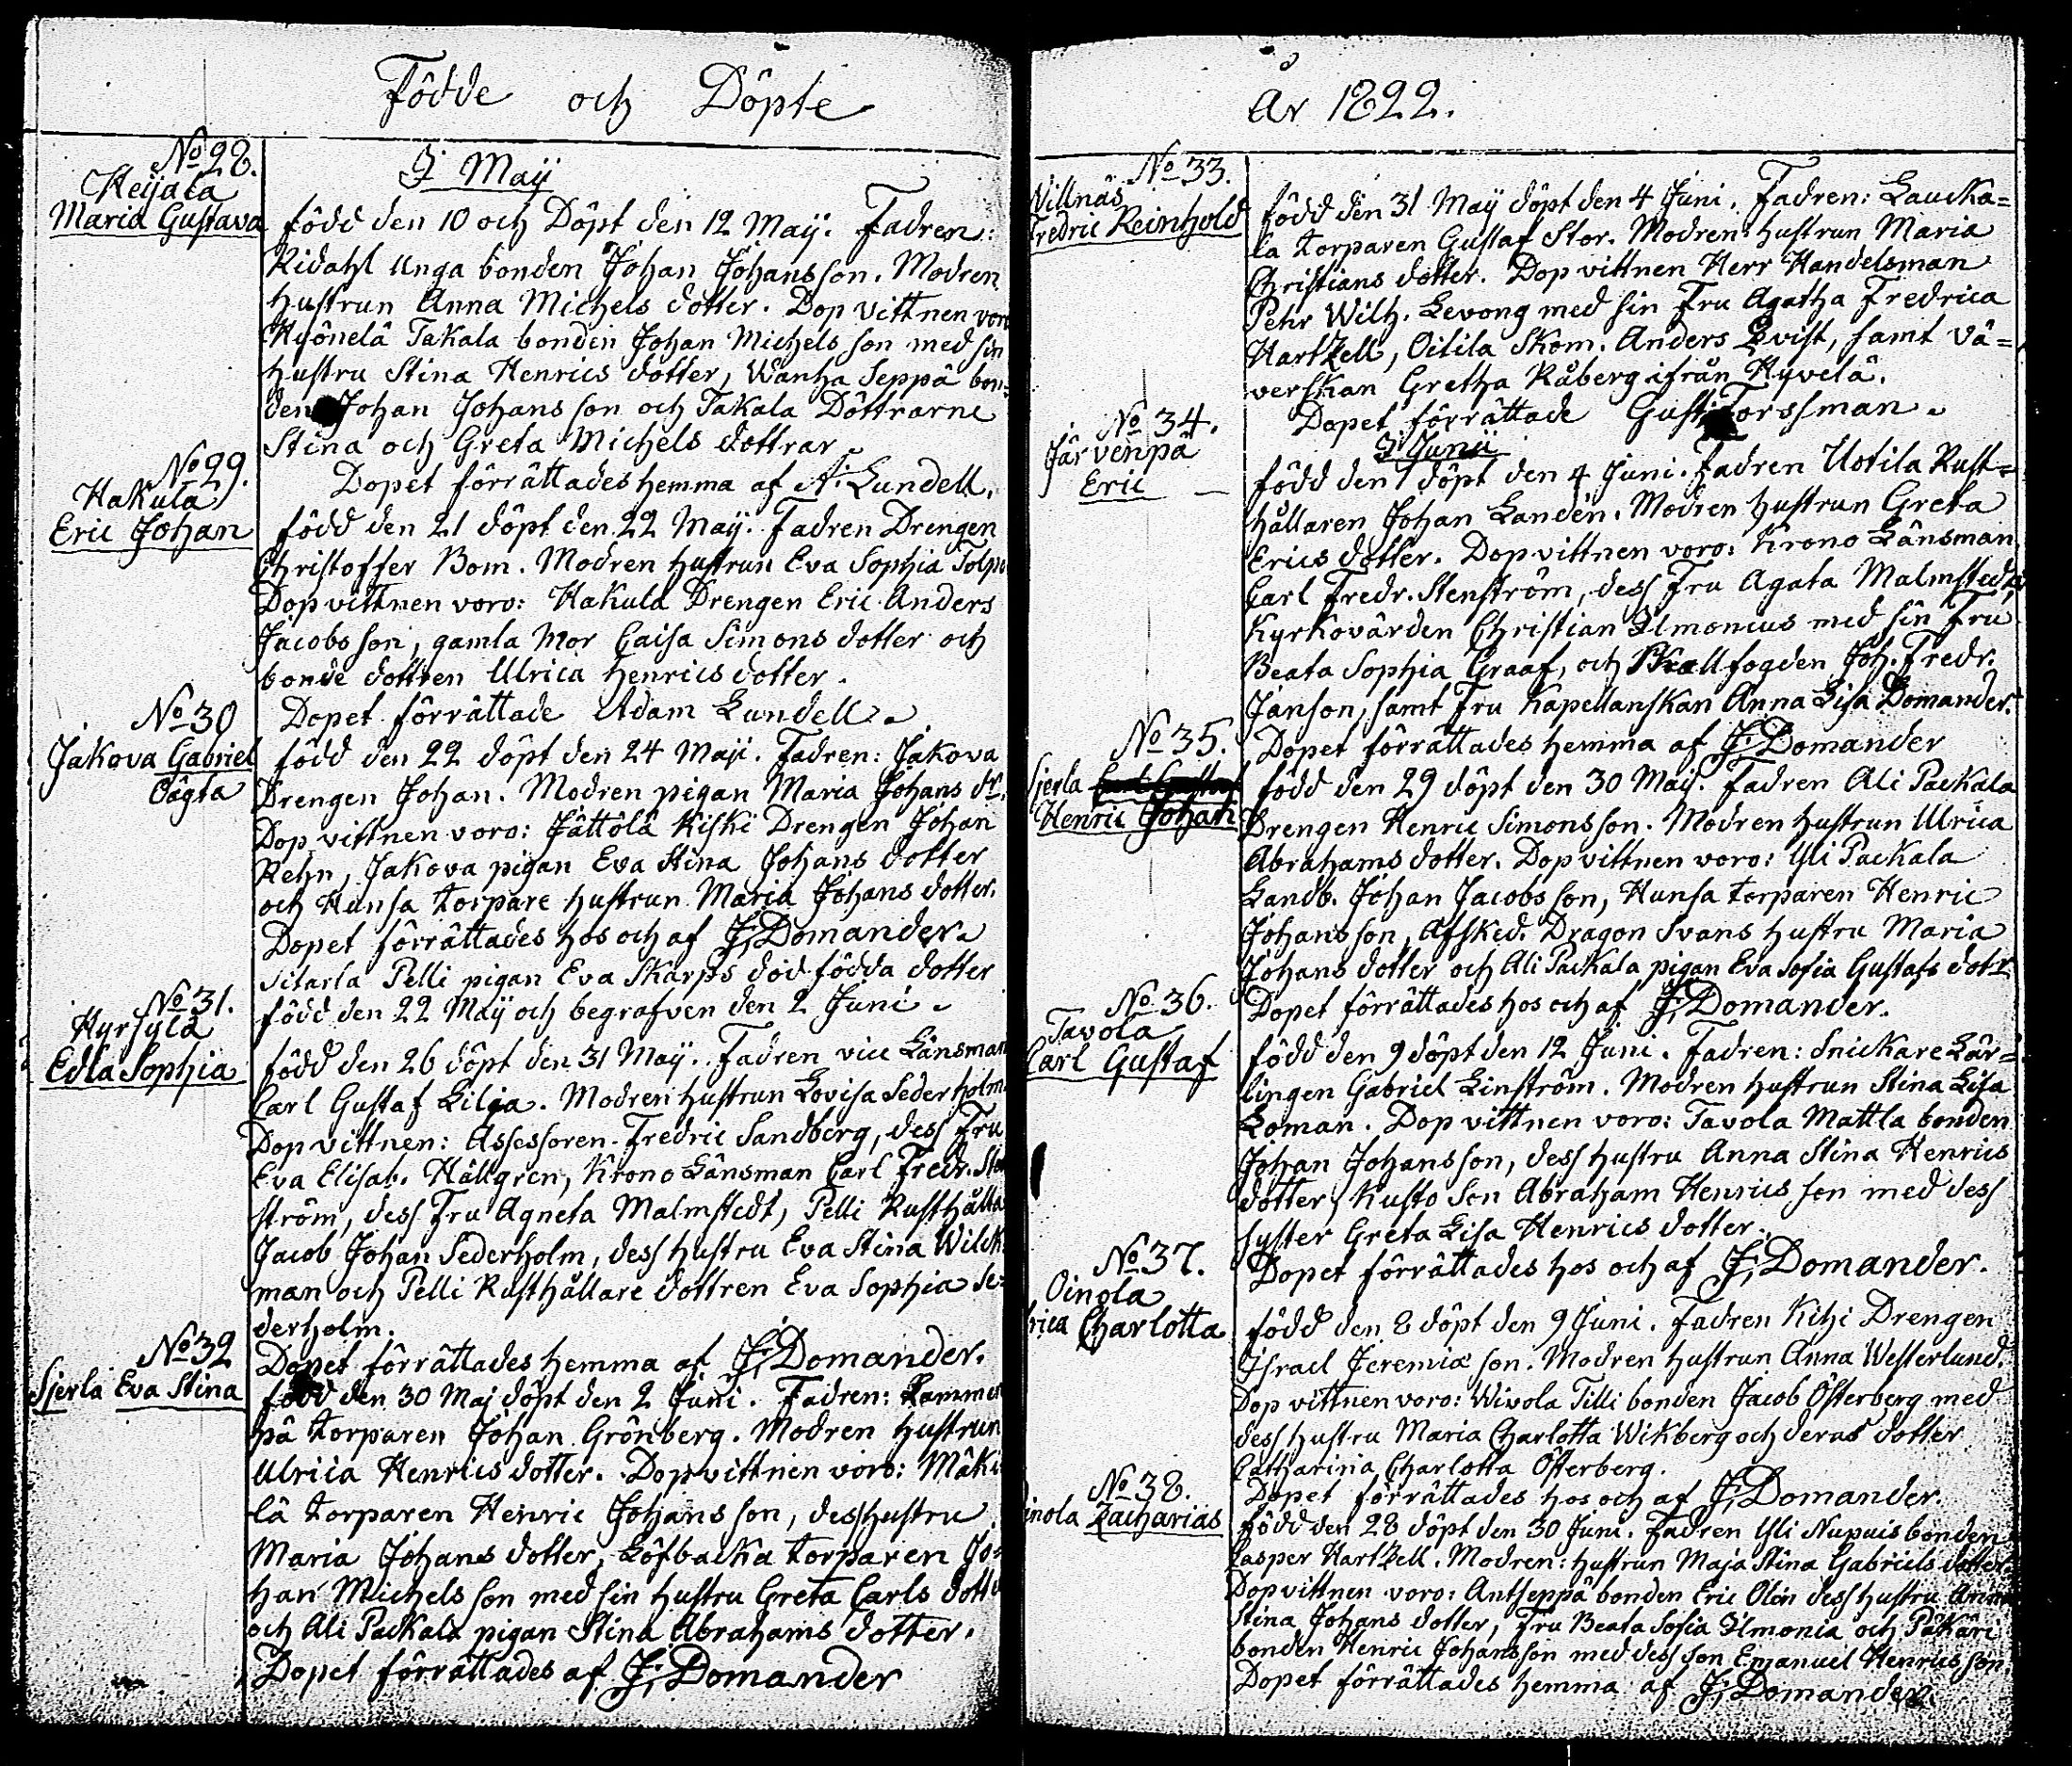 Födde och Döpte
No 28.
Keijala
Maria Gustava
I Maÿ
född den 10 och Döpt den 12 Maÿ. Fadren:
Ridahl Unga bonden Johan Johans son. Modren
hustrun Anna Michels dotter. Dop vittnen voro
Takala bonden Johan Michels son med sin
hustru Stina Henrics dotter, Wanha Seppä bon=
den Johan Johans son och Takala Döttrarne
Stina och Greta Michels döttrar
Dopet förrättades hemma af A: Lundell.
No 29.
Hakula
Eric Johan
född den 21 döpt den 22 Maÿ. Fadren Drengen
Christoffer Bom. Modren hustrun Eva Sophia
Dop vittnen voro: Hakula Drengen Eric Anders
Jacobs son, gamla Mor Caisa Simons dotter och
bonde dottren Ulrica Henrics dotter.
Dopet förrättade Adam Lundell.
No 30
Jakova Gabriel
Oägta
född den 22 döpt den 24 Maji. Fadren: Jakova
Drengen Johan. Modren pigan Maria Johans dr.
Dop vittnen voro: Jättölä Kiski Drengen Johan
Rehn, Jakova pigan Eva Stina Johans dotter
och Hunsa torpare hustrun Maria Johans dotter.
Dopet förrättades hos och af J; Domander.
Sitarla Pelli pigan Eva Skarps död födda dotter
född den 22 Maÿ och begrafven den 2 Juni.
No 31.
Hyrsylä
Edla Sophia
född den 26 döpt den 31 Maÿ. Fadren vice Länsman
Carl Gustaf Lilja. Modren hustrun Lovisa Sederholm.
Dop vittnen: Assessoren Fredric Sandberg, dess Fru
Eva Elisab. Hällgren, Krono Länsman Carl Fredr. Sten
ström, dess Fru Agneta Malmstedt, Pelli Rusthålla
Jacob Johan Sederholm, dess hustru Eva Stina Wilck
man och Pelli Rusthållare dottren Eva Sophia Se=
derholm.
Dopet förrättades hemma af J; Domander.
No 32
Sjerla Eva Stina
född den 30 Maj döpt den 2 Juni. Fadren: Lammen
pä torparen Johan Grönberg. Modren hustrun
Ulrica Henrics dotter. Dop vittnen voro: Mäki
lä torparen Henric Johans son, dess hustru
Maria Johans dotter, Löfbacka torparen Jo=
han Michels son med sin hustru Greta Carls dotte
och Ali Packala pigan Stina Abrahams dotter.
Dopet förrättades af J; Domander
År 1822.
No 33.
Willnäs
Fredric Reinhold
född den 31 Maÿ döpt den 4 Juni. Fadren: Laucka=
la torparen Gustaf Stor. Modren: hustrun Maria
Christians dotter. Dop vittnen Herr Handelsman
Pehr Wilh. Levong med sin Fru Agatha Fredrica
Hartzell, Oitila Skom. Anders Qvist, samt Vä=
verskan Gretha Råberg ifrån Hyvelä.
Dopet förrättade Gust: Forssman.
I Junii
No 34.
Järvenpä
Eric
född den 1 döpt den 4 Juni. Fadren Uotila Rust=
hållaren Johan Landén. Modren hustrun Greta
Erics dotter. Dop vittnen voro: Krono Länsman
Carl Fredr. Stenström, dess Fru Agata Malmstedt,
Kyrkovärden Christian Ilmonius med sin Fru
Beata Sophia Graaf, och Skallfogden Joh. Fredr.
Janson, samt Fru Kapellanskan Anna Lisa Domander.
Dopet förrättades hemma af J; Domander
No 35.
Sjerla
Henric Johan
född den 29 döpt den 30 Maij. Fadren Ali Packala
Drengen Henric Simons son. Modren hustrun Ulrica
Abrahams dotter. Dop vittnen voro: Yli Packala
Landb. Johan Jacobs son, Hunsa torparen Henric
Johans son, Afsked. Dragon Svans hustru Maria
Johans dotter och Ali Packala pigan Eva Sofia Gustafs dot:r
Dopet förrättades hos och af J; Domander.
No 36.
Tavola
Carl Gustaf
född den 9 döpt den 12 Juni. Fadren: Snickare Lär=
lingen Gabriel Linström. Modren hustrun Stina Lisa
Loman. Dop vittnen voro: Tavola Mattla bonden
Johan Johans son, dess hustru Anna Stina Henrics
dotter, Kusto Son Abraham Henrics son med dess
syster Greta Lisa Henrics dotter.
Dopet förrättades hos och af J; Domander.
No 37.
Oinola
rica Charlotta
född den 8 döpt den 9 Juni. Fadren Kihi Drengen
Israel Jeremiæ son. Modren hustrun Anna Westerlund.
Dop vittnen voro: Wivola Tilli bonden Jacob Österberg med
dess hustru Maria Charlotta Wikberg och deras dotter
Catharina Charlotta Österberg.
Dopet förrättades hos och af J; Domander.
No 38.
inola Zacharias
född den 28 döpt den 30 Juni. Fadren Yli Nupuis bonden
Casper Hartzell. Modren: hustrun Maja Stina Gabriels dotter
Dop vittnen voro: Antseppä bonden Eric Olin dess hustru Anna
Stina Johans dotter, Fru Beata Sofia Ilmonia och Päkäri
bonden Henric Johansson med dess son Emanuel Henrics son.
Dopet förrättades hemma af J; Domander.